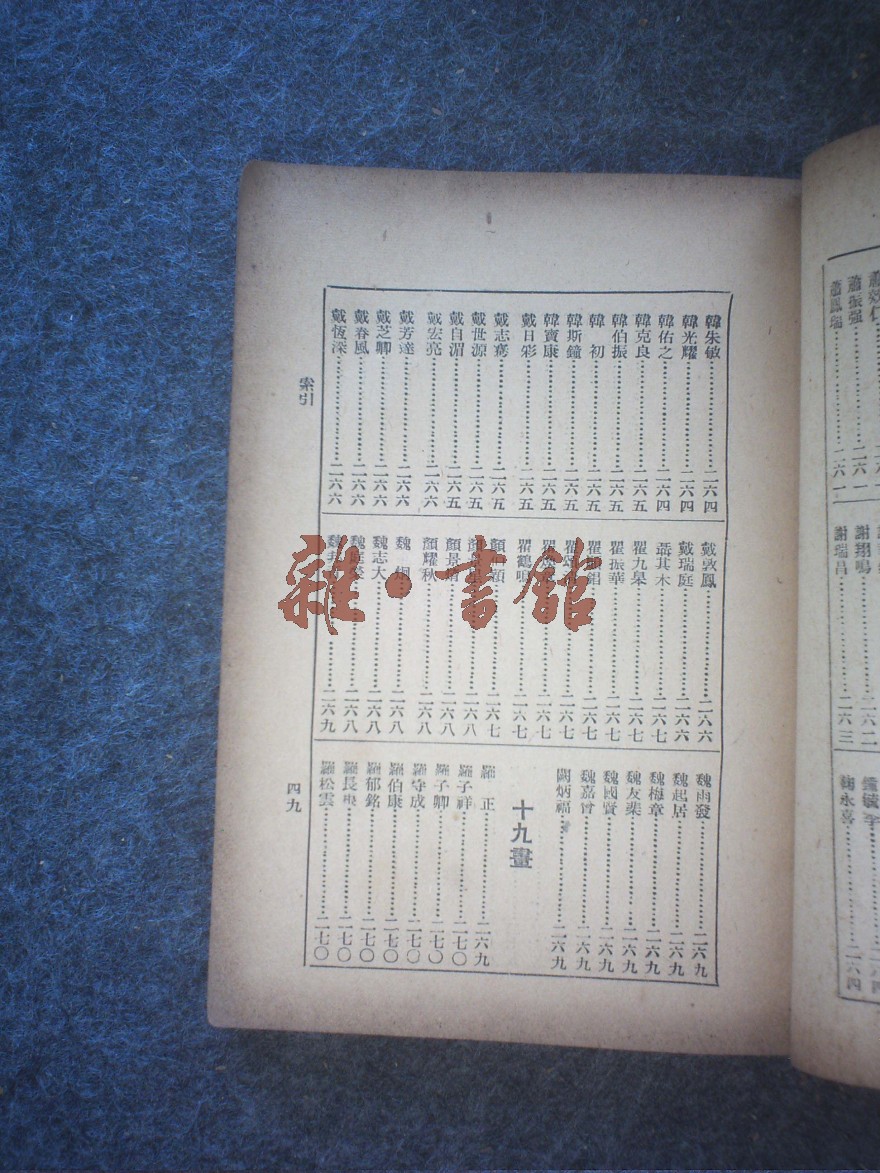 韓朱敏……二六四
韓光耀……二六四
韓佑之……二六四
韓克良……二六五
韓伯振……二六五
韓　初……二六五
韓斯鐘……二六五
韓寶康……二六五
戴日彩……二六五
戴志騫……二六五
戴世源……二六五
戴自湄……二六五
戴宏亮……二六六
戴芳達……二六六
戴芝卿……二六六
戴春風……二六六
戴恆深……二六六
戴敦鳳……二六六
戴瑞庭……二六六
聶其木……二六七
瞿九臯……二六七
瞿振華……二六七
瞿　錩……二六七
瞿……二六七
瞿……二六七
瞿鶴鳴……二六七
顏　頫……二六七
顏……二六八
顏景　……二六八
顏耀秋……二六八
魏　炯……二六八
魏志大……二六八
魏庭　……二六八
魏……二六九
魏雨發……二六九
魏起居……二六九
魏梅章……二六九
魏友棐……二六九
魏國賢……二六九
魏嘉會……二六九
闕炳福……二六九
十九畫
羅　正……二六九
羅子祥……二七〇
羅子卿……二七〇
羅守成……二七〇
羅伯康……二七〇
羅郁銘……二七〇
羅長　……二七〇
羅松雲……二七〇
索引
四九
蕭振强
蕭鳳瑞……二六一
謝翔鳴……二六二
謝瑞昌……二六三
鞠永喜……二六四
雜·書館